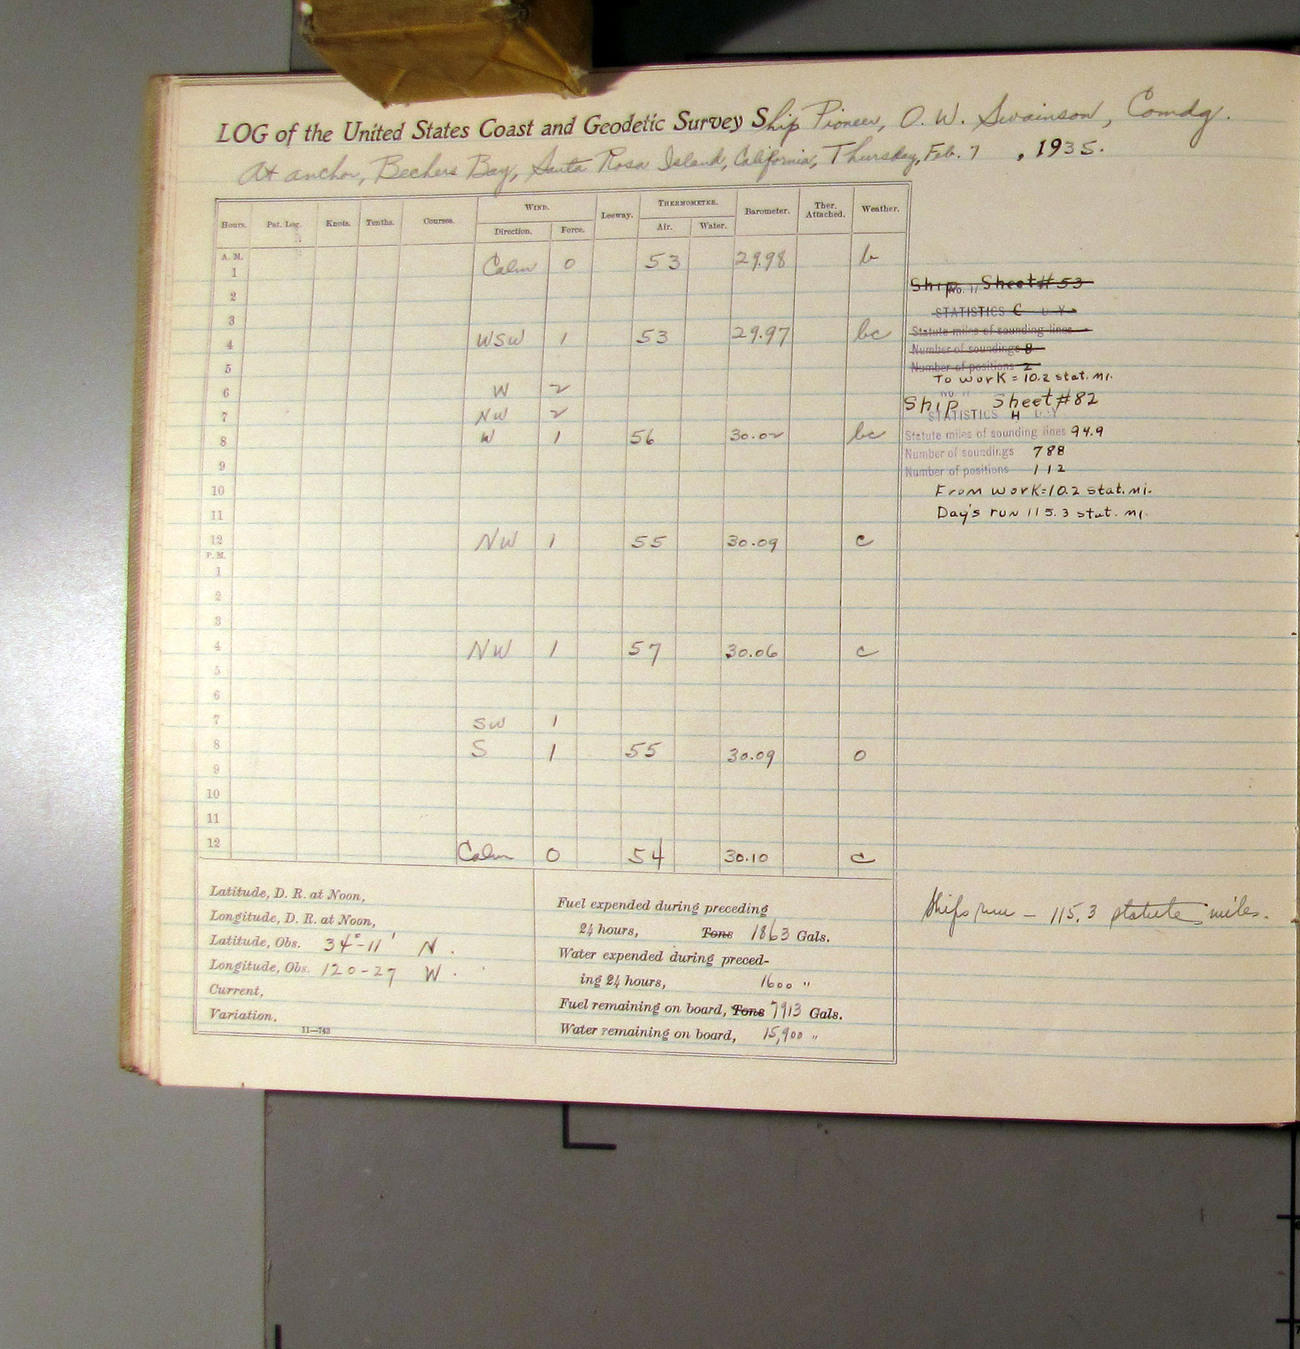 LOG of the United States Coast and Geodetic Survey Ship Pioneer, O. W. Swainson, Comdg.
At anchor, Bechers Bay, Santa Rosa Island, California, Thursday, Feb. 7, 1935.
WIND. THERMOMETER.
Hours. Pat. Log. Knots. Tenths. Courses. Direction. Force. Leeway. Air. Water. Barometer. Ther. Attached. Weather.
A. M.
1 Calm 0 53 29.98 b
2
3
4 WSW 1 53 29.97 bc
5
6 W 2
7 NW 2
8 W 1 56 30.02 bc
9
10
11
12 NW 1 55 30.09 c
P. M.
1
2
3
4 NW 1 57 30.06 c
5
6
7 SW 1
8 S 1 55 30.09 o
9
10
11
12 Calm 0 54 30.10 c
Ship Sheet #53
STATISTICS C D Y
Statute miles of sounding lines
Number of soundings 8
Number of positions 2
To work = 10.2 stat. mi.
Ship Sheet #82
STATISTICS H
Statute miles of sounding lines 94.9
Number of soundings 788
Number of positions 112
From work = 10.2 stat. mi.
Day's run 115.3 stat. mi.
Latitude, D. R. at Noon,
Longitude, D. R. at Noon,
Latitude, Obs. 34°-11' N.
Longitude, Obs. 120-27 W.
Current,
Variation.
11—743
Fuel expended during preceding
24 hours, Tons 1863 Gals.
Water expended during preced-
ing 24 hours, 1600 "
Fuel remaining on board, Tons 7913 Gals.
Water remaining on board, 15,900 "
Ships run - 115.3 statute miles.